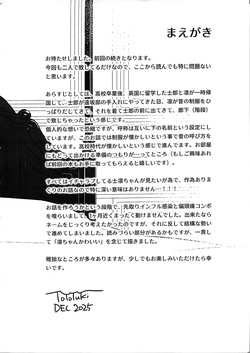 まえがき
お待たせしました、前回の続きとなります。
今回も二人で致してるだけなので、ここから読んでも特に問題ない
と思います。
あらすじとしては、高校卒業後、英国に留学した士郎と凛が一時帰
国して、士郎が遠坂邸の手入れにやってきた日、凛が昔の制服をひ
っぱりだしてきて、それを着て士郎の前に出てきて、廊下（階段）
で致しちゃったという感じです。
個人的な想いで恐縮ですが、呼称は互いに下の名前という設定にし
ていますが、このお話では制服が懐かしいという事で昔の呼び方を
しています。高校時代が懐かしいという感じで進んでます。お部屋
にもどって出かける準備のつもりが…ってところ（もしご興味あれ
ば前回の本もお手に取ってもらえたら嬉しいです）からのお話です。
すべてはイチャラブしてる士凛ちゃんが見たいが為で、作為ありま
くりのお話なので特に深い意味はありませんー！！！
お話を作ろうかという段階で、先取りインフル感染と偏頭痛コンボ
を喰らいまして、1ヶ月近くまったく動けませんでした。出来たなら
ネームもじっくり考えたかったのですが、それに反して結構な勢い
で進めてしまいました。読みづらい部分があるかもですが、一貫し
て「凛ちゃんかわいい」を念じて描きました。
稚拙なところが多々ありますが、少しでもお楽しみいただけたら幸
いです。
TOTOTUKI
DEC 2025